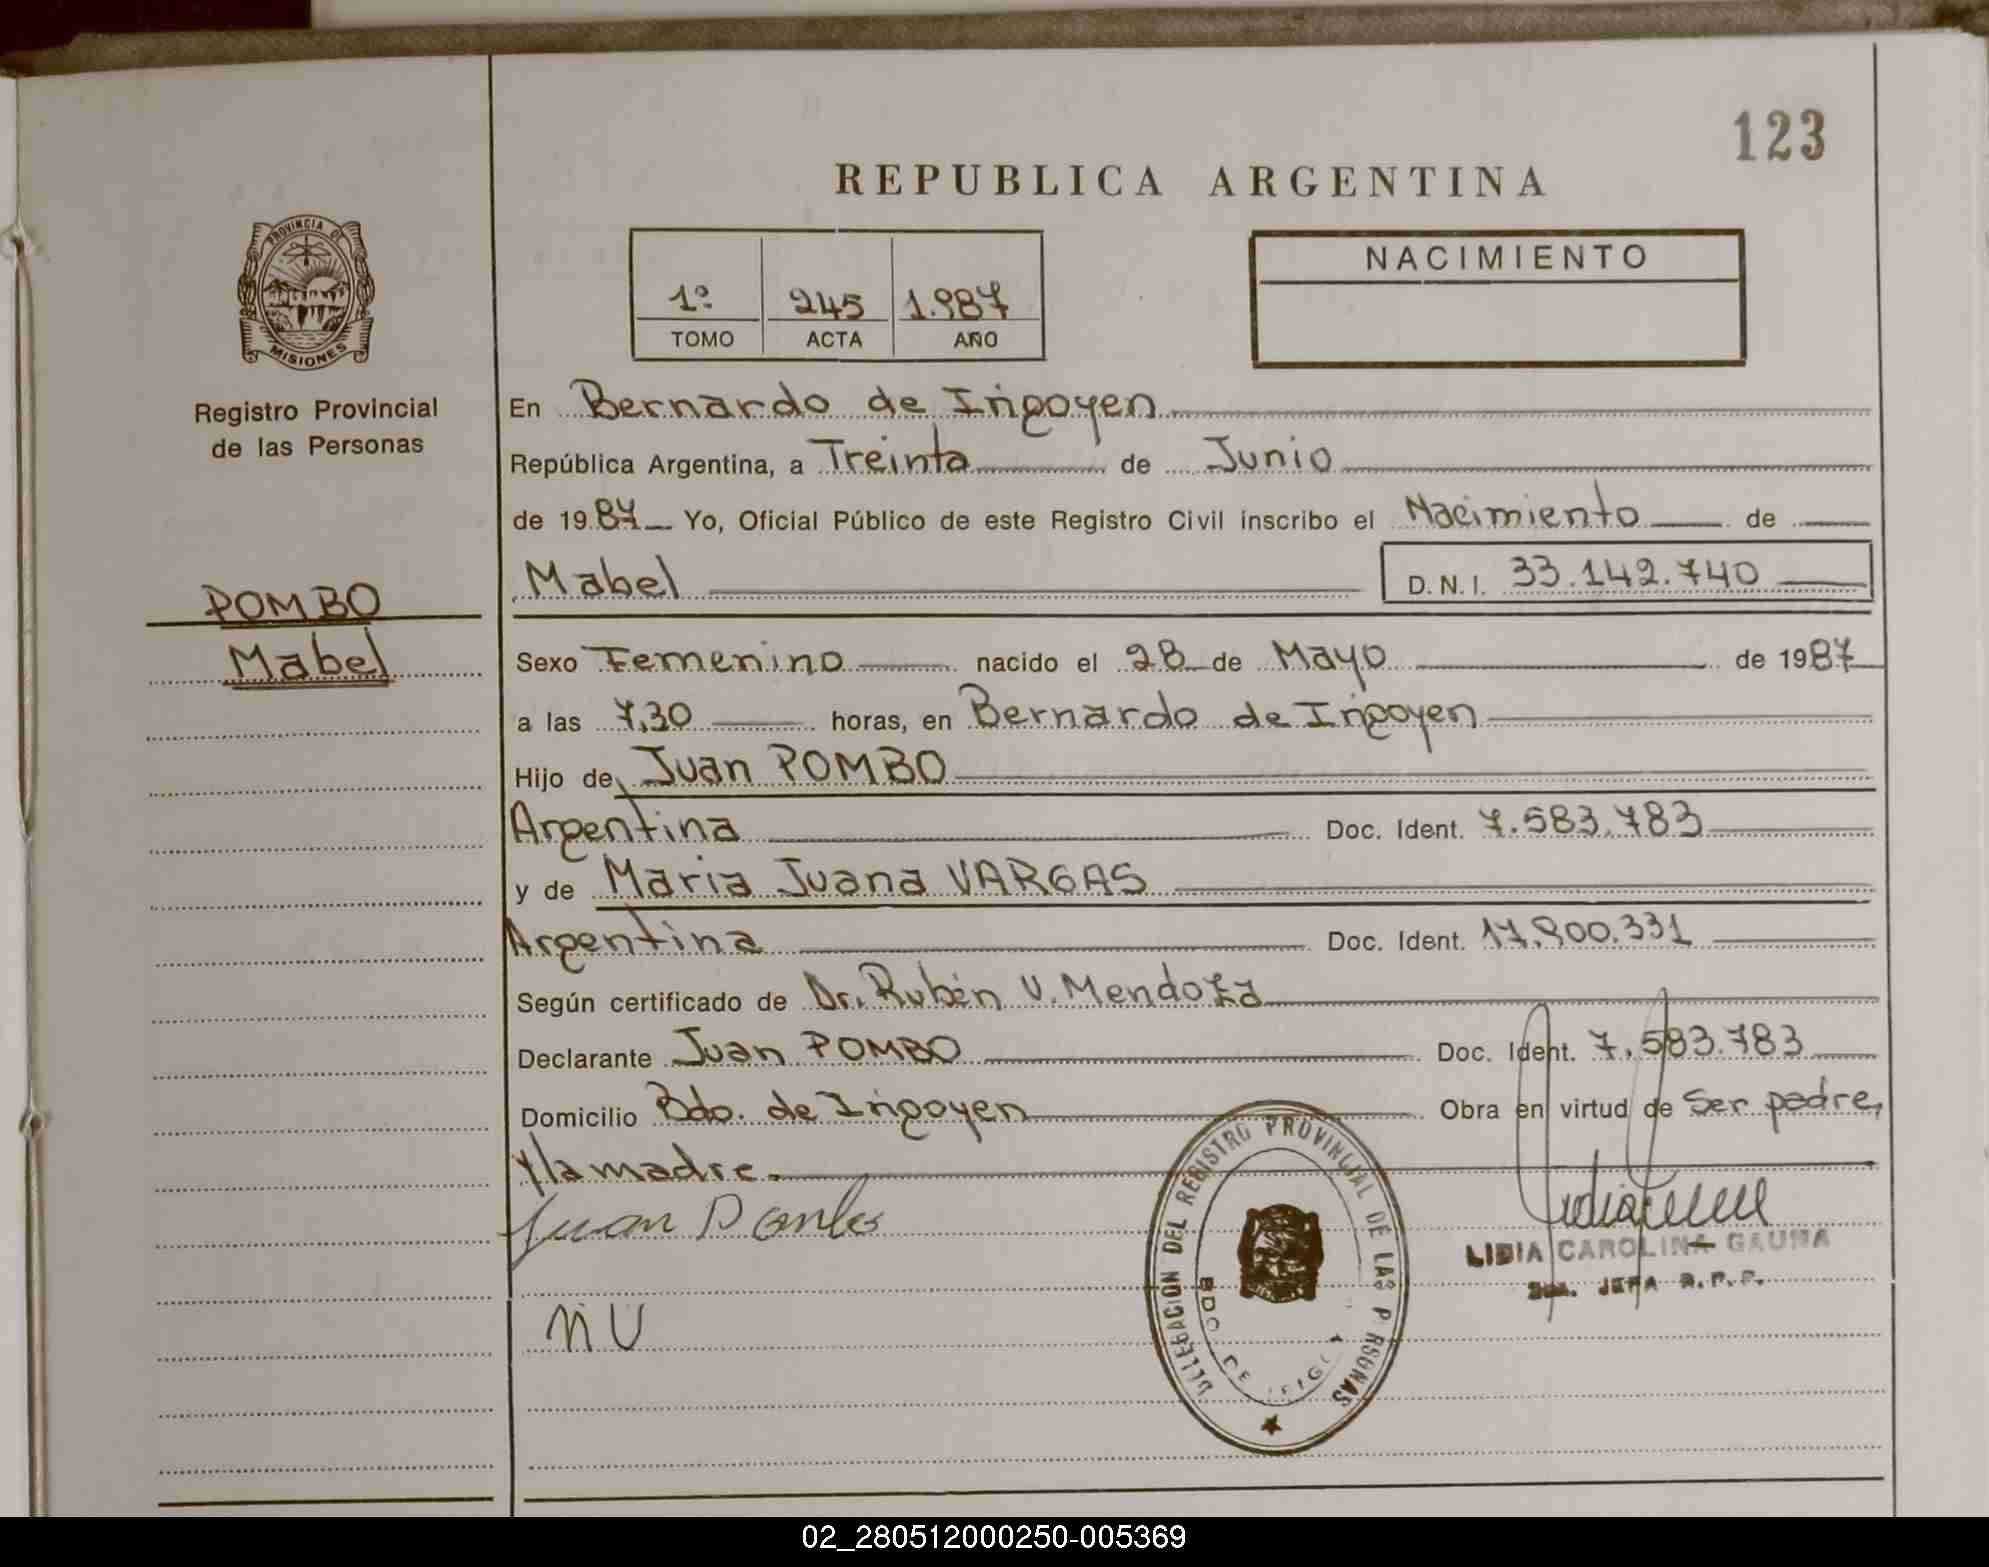 123
REPUBLICA ARGENTINA
PROVINCIA DE
MISIONES
Registro Provincial
de las Personas
1º 245 1.987
TOMO ACTA AÑO
NACIMIENTO
En Bernardo de Irigoyen
República Argentina, a Treinta de Junio
de 1987 Yo, Oficial Público de este Registro Civil inscribo el Nacimiento de
Mabel D.N.I. 33.142.740
POMBO
Mabel
Sexo Femenino nacido el 28 de Mayo de 1987
a las 7,30 horas, en Bernardo de Irigoyen
Hijo de Juan POMBO
Argentina Doc. Ident. 7.583.783
y de Maria Juana VARGAS
Argentina Doc. Ident. 17.900.331
Según certificado de Dr. Rubén V. Mendoza
Declarante Juan POMBO Doc. Ident. 7.583.783
Domicilio Bdo. de Irigoyen Obra en virtud de Ser padre,
y la madre.
Juan Pombo
MV
DELEGACION DEL REGISTRO PROVINCIAL DE LAS PERSONAS
BDO. DE
LIDIA CAROLINA GAUNA
JEFA R.P.P.
02_280512000250-005369